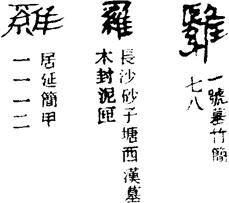 一號墓竹簡
七八
長沙砂子塘西漢墓
木封泥匣
居延簡甲
一一一二